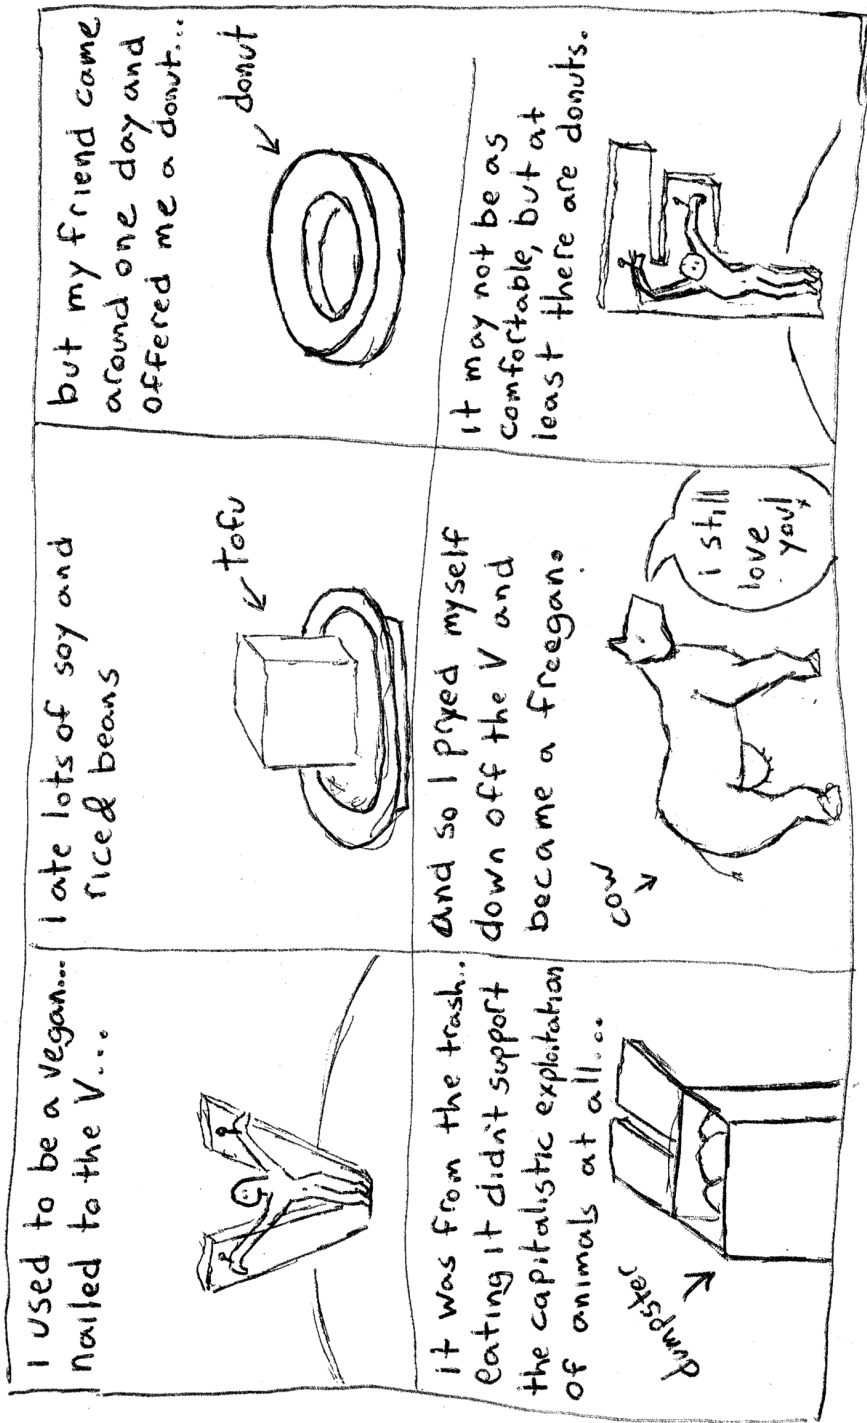 I used to be a vegan...
nailed to the V...
I ate lots of soy and
rice & beans
tofu
but my friend came
around one day and
offered me a donut...
donut
it was from the trash..
eating it didn't support
the capitalistic exploitation
of animals at all...
dumpster
and so I pryed myself
down off the V and
became a freegan.
cow
i still
love
you!
it may not be as
comfortable, but at
least there are donuts.